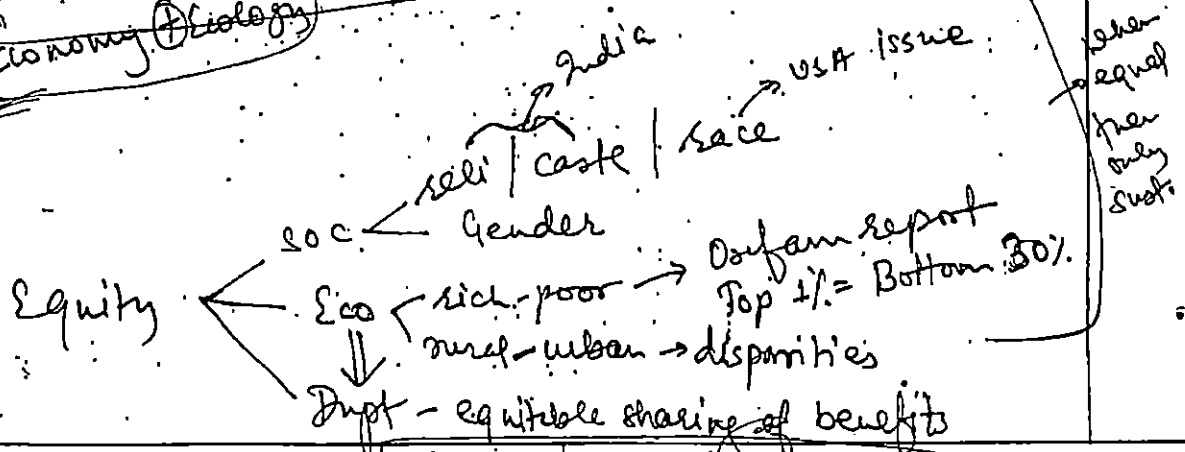 Economy + Ecology
India
USA issue
reli | caste | race
when
equal
then
only
sust.
soc
Gender
Equity
Eco
rich-poor → Oxfam report
Top 1% = Bottom 30%
rural-urban → disparities
Dvpt - equitable sharing of benefits